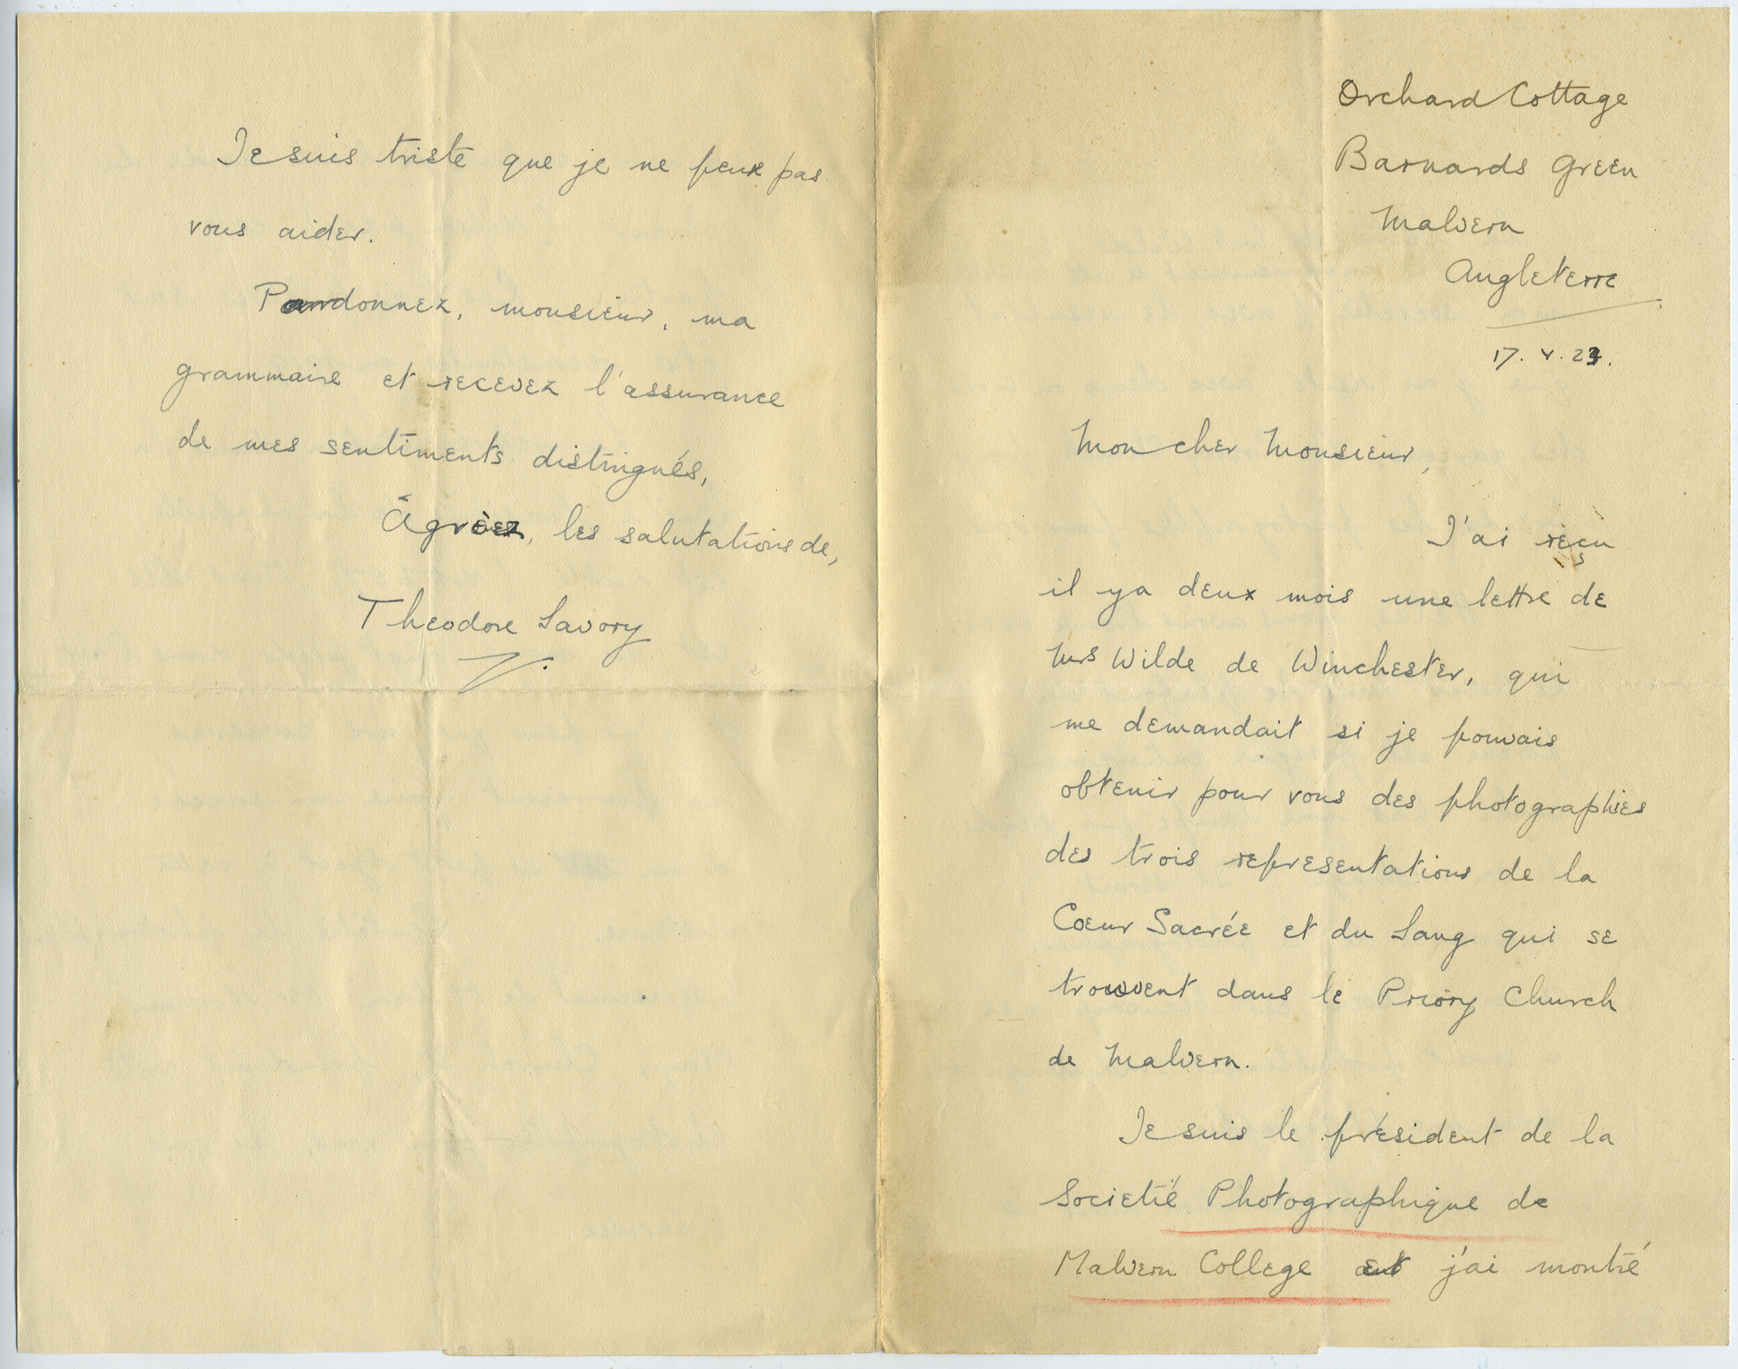 Orchard Cottage
Barnards Green
Malvern
Angleterre
17. V. 23.
Mon cher Monsieur,
J'ai reçu
il ya deux mois une lettre de
Mrs Wilde de Winchester, qui
me demandait si je pouvais
obtenir pour vous des photographies
des trois representations de la
Cœur Sacrée et du Sang qui se
trouvent dans le Priory Church
de Malvern.
Je suis le président de la
Societié Photographique de
Malvern College et j'ai montré
Je suis triste que je ne peux pas
vous aider.
Pardonnez, monsieur, ma
grammaire et recevez l'assurance
de mes sentiments distingués,
Agrèez, les salutations de,
Theodore Savory